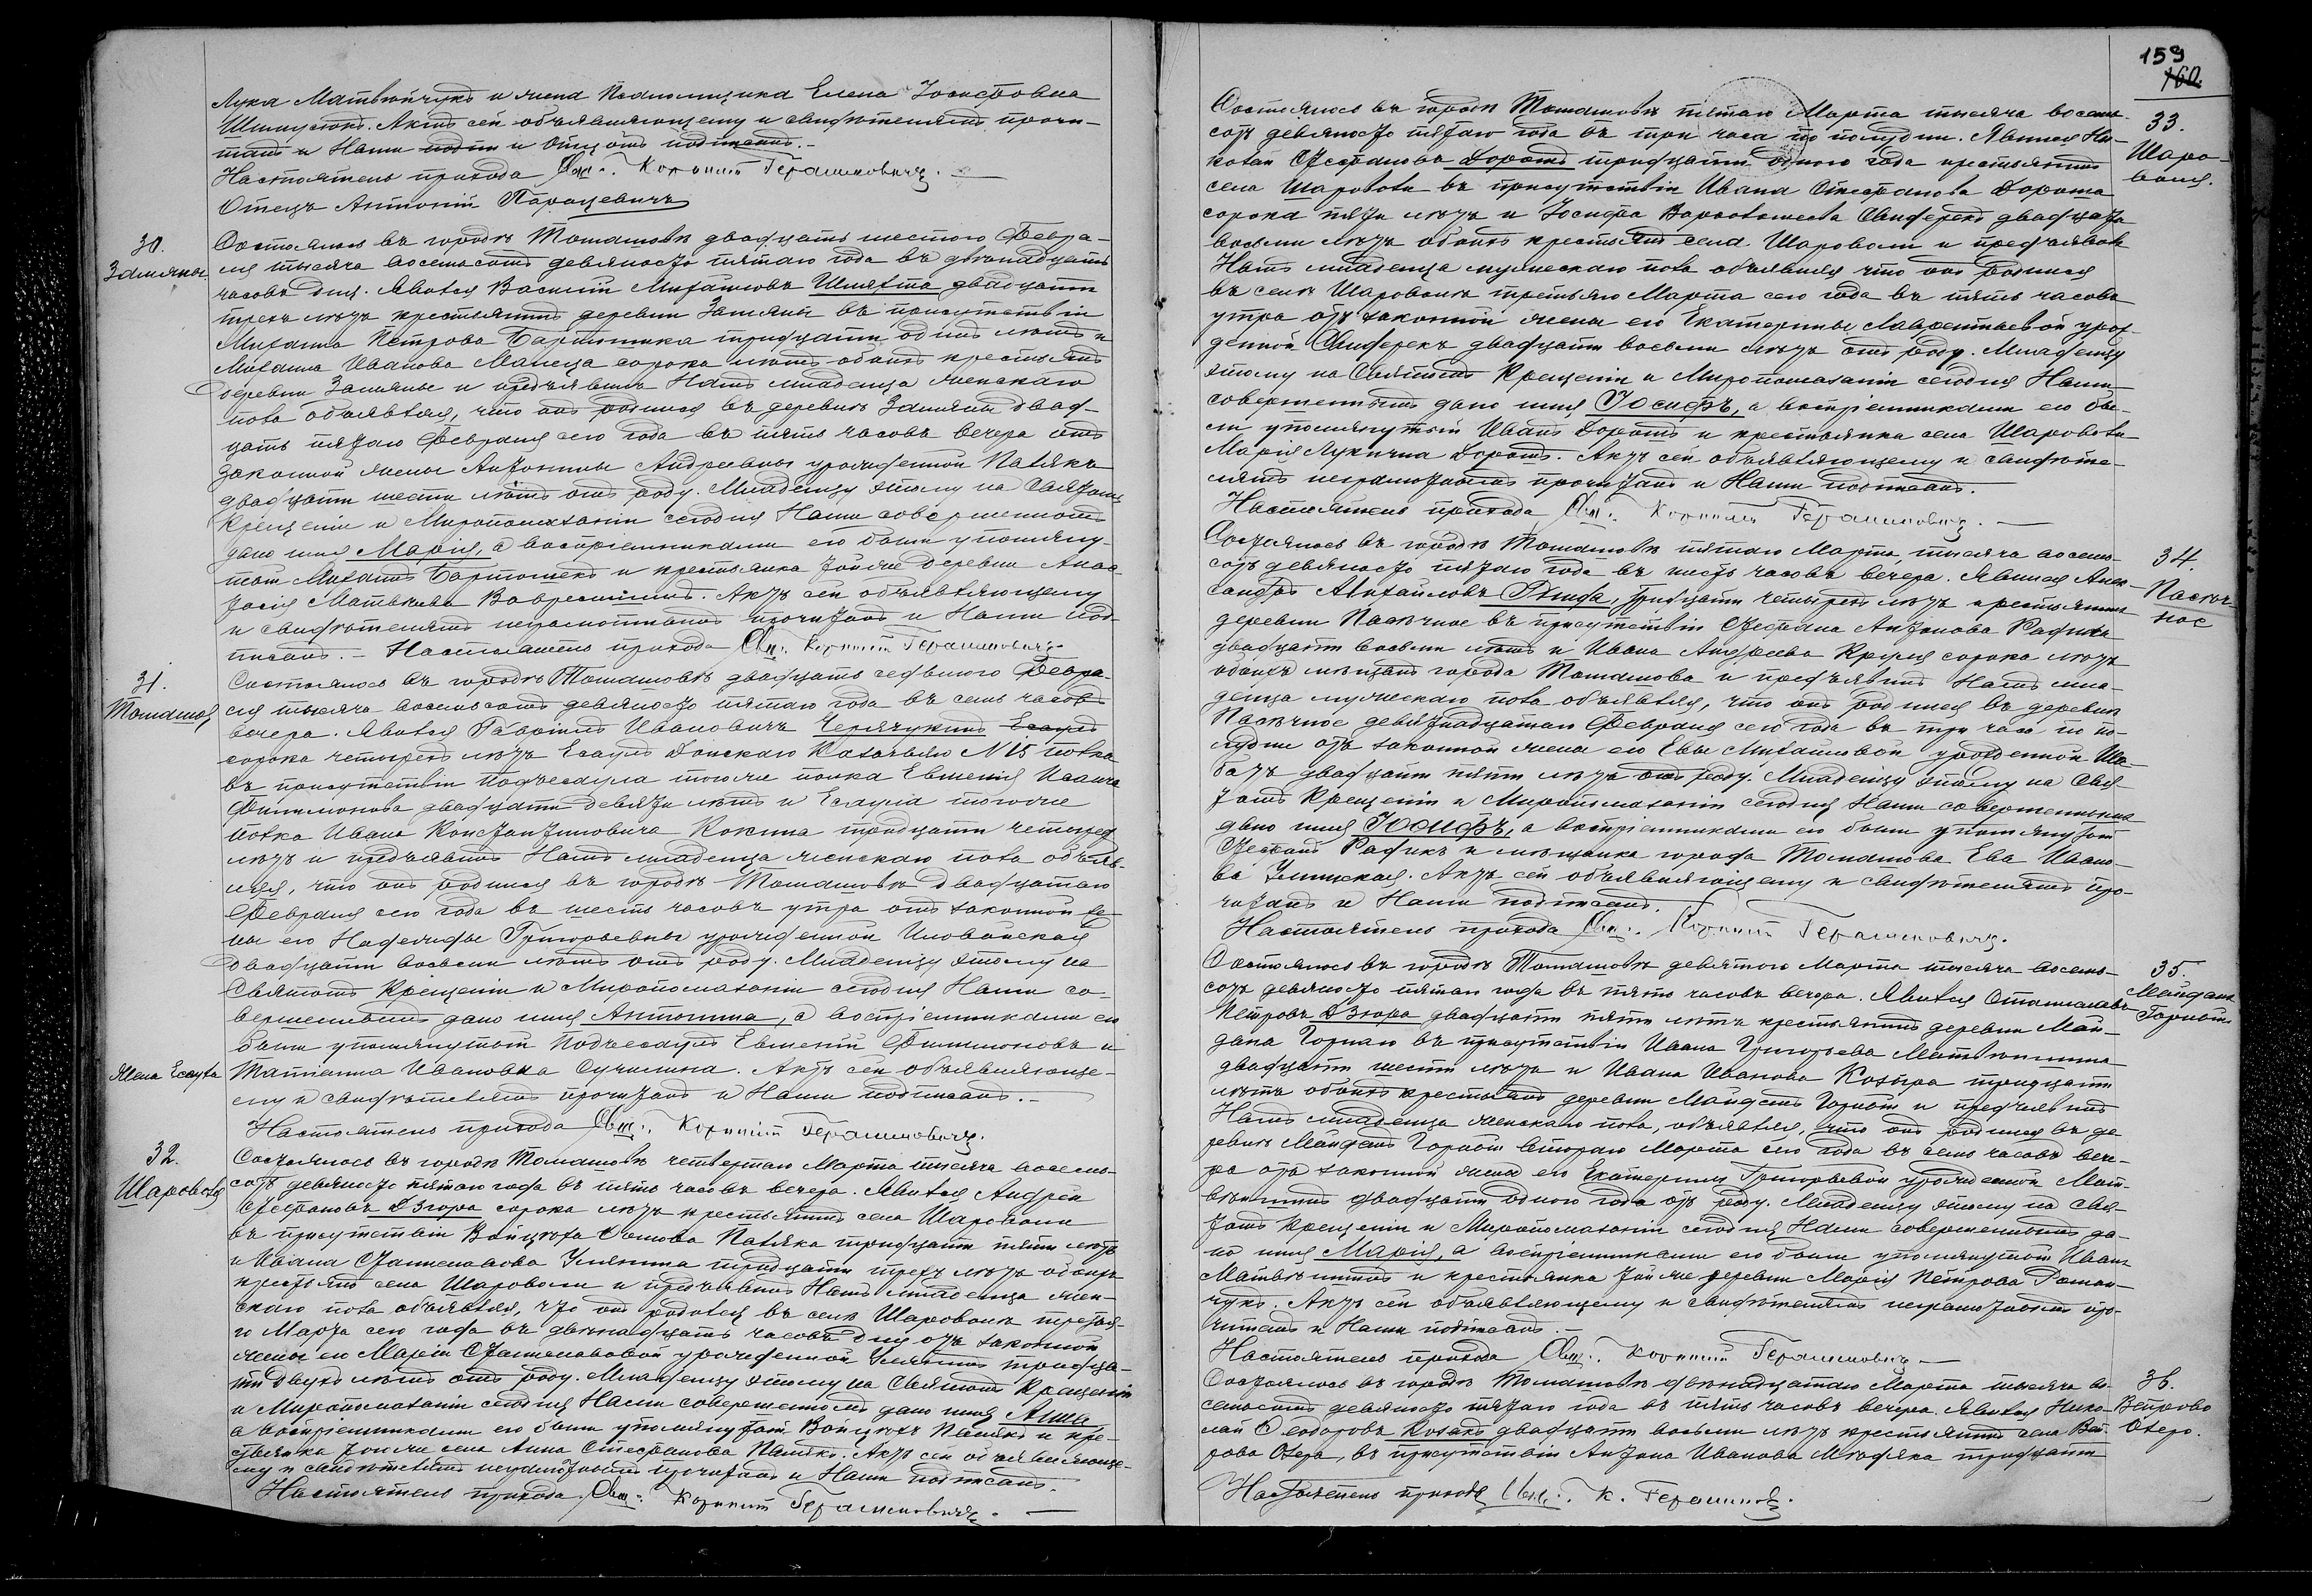 Лука Матвѣйчукъ и жена Псаломщика Елена Іосифовна
Актъ сей объявляющему и свидѣтелямъ прочи-
танъ и Нами и Отцомъ подписанъ.-
Настоятель прихода Свщ. Корнилій Герасимовичъ.
Отецъ Антоній
30.
Замяны
Состоялось въ городѣ Томашовѣ двадцать шестого Февра-
ля тысяча восемьсотъ девяносто пятаго года въ двѣнадцать
часовъ дня. Явился Василій Михайловъ двадцати
трехъ лѣтъ крестьянинъ деревни Замяны въ присутствіи
Михаила Петрова тридцати одного лѣтъ и
Михаила Иванова сорока лѣтъ обоихъ крестьянъ
деревни Замяны и предъявилъ Намъ младенца женскаго
пола объявляя, что онъ родился въ деревнѣ Замяны двад-
цать пятаго Февраля сего года въ пять часовъ вечера отъ
законной жены Антонины Андреевны урожденной Палякъ
двадцати шести лѣтъ отъ роду. Младенцу этому на Святомъ
Крещеніи и Миропомазаніи сегодня Нами совершенномъ
дано имя Марія, а воспріемниками его были упомяну-
тый Михаилъ и крестьянка той же деревни Анас-
тасія Матвѣева Актъ сей объявляющему
и свидѣтелямъ неграмотнымъ прочитанъ и Нами под-
писанъ.- Настоятель прихода Свщ. Корнилій Герасимовичъ
31.
Томашов
Состоялось въ городѣ Томашовѣ двадцать седьмого Февра-
ля тысяча восемьсотъ девяносто пятаго года въ семь часовъ
вечера. Явился Гавріилъ Ивановичъ Есаулъ
сорока четырехъ лѣтъ Есаулъ Донскаго Казачьяго N 15 полка
въ присутствіи Подъесаула того же полка Евгенія
Филимонова двадцати девяти лѣтъ и Есаула того же
полка Ивана Константиновича тридцати четырехъ
лѣтъ и предъявилъ Намъ младенца женскаго пола объяв-
ляя, что онъ родился въ городѣ Томашовѣ двадцатаго
Февраля сего года въ шесть часовъ утра отъ законной же-
ны его Надежды Григорьевны урожденной Иловайской
двадцати восьми лѣтъ отъ роду. Младенцу этому на
Святомъ Крещеніи и Миропомазаніи сегодня Нами со-
вершенномъ дано имя Антонина, а воспріемниками его
были упомянутый Подъесаулъ Евгеній Филимоновъ и
Жена Есаула
Татіанна Ивановна Сучилина. Актъ сей объявляюще-
му и свидѣтелямъ прочитанъ и Нами подписанъ.-
Настоятель прихода Свщ. Корнилій Герасимовичъ.
32.
Шароволя
Состоялось въ городѣ Томашовѣ четвертаго Марта тысяча восемь-
сотъ девяносто пятаго года въ пять часовъ вечера. Явился Андрей
Стефановъ Дзюра сорока лѣтъ крестьянинъ села Шароволи
въ присутствіи Войцѣха Паляка тридцати пяти лѣтъ
и Ивана Станиславова тридцати трехъ лѣтъ обоихъ
крестьянъ села Шароволи и предъявилъ Намъ младенца жен-
скаго пола объявляя, что онъ родился въ селѣ Шароволѣ третья-
го Марта сего года въ двѣнадцать часовъ дня отъ законной
жены его Маріи Станиславовой урожденной тридца-
ти двухъ лѣтъ отъ роду. Младенцу этому на Святомъ Крещеніи
и Миропомазаніи сегодня Нами совершенномъ дано имя Анна
а воспріемниками его были упомянутый Войцѣхъ Палякъ и кре-
стьянка той же села Анна Стефанова Палякъ. Актъ сей объявляюще-
му и свидѣтелямъ неграмотнымъ прочитанъ и Нами подписанъ.
Настоятель прихода Свщ. Корнилій Герасимовичъ.
159
160
33.
Шаро-
воля.
Состоялось въ городѣ Томашовѣ пятаго Марта тысяча восемь-
сотъ девяносто пятаго года въ три часа по полудни. Явился Ни-
колай Стефановъ Дорошъ тридцати одного года крестьянинъ
села Шароволи въ присутствіи Ивана Стефанова Дороша
сорока пяти лѣтъ и Іосифа двадцати
восьми лѣтъ обоихъ крестьянъ села Шароволи и предъявилъ
Намъ младенца мужескаго пола объявляя что онъ родился
въ селѣ Шароволѣ третьяго Марта сего года въ пять часовъ
утра отъ законной жены его Екатерины Лаврентьевой урож-
денной двадцати восьми лѣтъ отъ роду. Младенцу
этому на Святомъ Крещеніи и Миропомазаніи сегодня Нами
совершенномъ дано имя Іосифъ, а воспріемниками его бы-
ли упомянутый Иванъ Дорошъ и крестьянка села Шароволи
Марія Лукична Дорошъ. Актъ сей объявляющему и свидѣте-
лямъ неграмотнымъ прочитанъ и Нами подписанъ.
Настоятель прихода Свщ. Корнилій Герасимовичъ.
34.
Пасѣч-
ное
Состоялось въ городѣ Томашовѣ пятаго Марта тысяча восемь-
сотъ девяносто пятаго года въ шесть часовъ вечера. Явился Алек-
сандръ Михайловъ тридцати четырехъ лѣтъ крестьянинъ
деревни Пасѣчное въ присутствіи Стефана Антонова Радика
двадцати восьми лѣтъ и Ивана Андреева сорока лѣтъ
обоихъ мѣщанъ города Томашова и предъявилъ Намъ мла-
денца мужескаго пола объявляя, что онъ родился въ деревнѣ
Пасѣчное девятнадцатаго Февраля сего года въ три часа по по-
лудни отъ законной жены его Евы Михайловой урожденной
двадцати пяти лѣтъ отъ роду. Младенцу этому на Свя-
томъ Крещеніи и Миропомазаніи сегодня Нами совершенномъ
дано имя Іосифъ, а воспріемниками его были упомянутый
Стефанъ Радикъ и мѣщанка города Томашова Ева Ивано-
ва Актъ сей объявляющему и свидѣтелямъ про-
читанъ и Нами подписанъ.
Настоятель прихода Свщ. Корнилій Герасимовичъ.
35.
Майданъ
Горный
Состоялось въ городѣ Томашовѣ девятого Марта тысяча восемь-
сотъ девяносто пятаго года въ пять часовъ вечера. Явился Станиславъ
Петровъ Дзюра двадцати пяти лѣтъ крестьянинъ деревни Май-
дана Горнаго въ присутствіи Ивана Григорьева
двадцати шести лѣтъ и Ивана Иванова тридцати
лѣтъ обоихъ крестьянъ деревни Майданъ Горный и предъявилъ
Намъ младенца женскаго пола, объявляя, что онъ родился въ де-
ревнѣ Майданъ Горный второго Марта сего года въ семь часовъ вече-
ра отъ законной жены его Екатерины Григорьевой урожденной Мат-
двадцати одного года отъ роду. Младенцу этому на Свя-
томъ Крещеніи и Миропомазаніи сегодня Нами совершенномъ да-
но имя Марія, а воспріемниками его были упомянутый Иванъ
и крестьянка той же деревни Марія Петрова Роман-
чукъ. Актъ сей объявляющему и свидѣтелямъ неграмотнымъ про-
читанъ и Нами подписанъ.
Настоятель прихода Свщ. Корнилій Герасимовичъ
36.
Вепрово
Озеро.
Состоялось въ городѣ Томашовѣ двѣнадцатаго Марта тысяча во-
семьсотъ девяносто пятаго года въ пять часовъ вечера. Явился Нико-
лай Ѳеодоровъ Козакъ двадцати восьми лѣтъ крестьянинъ села Веп-
рова Озера, въ присутствіи Антона Иванова тридцати
Настоятель прихода Свщ. К. Герасимов.